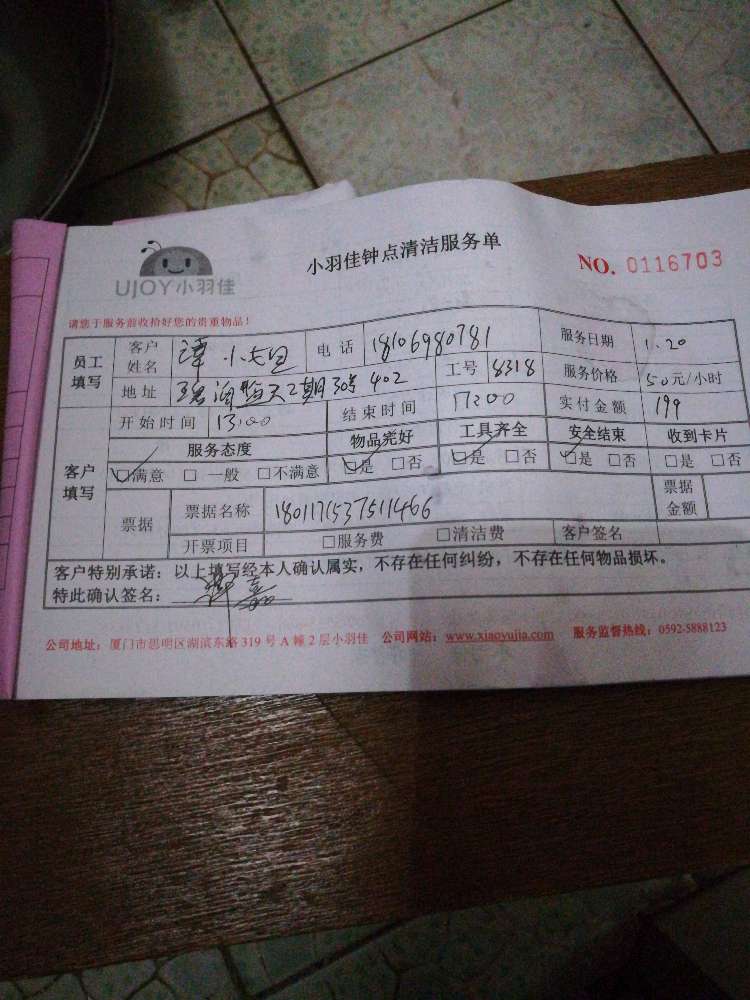 UJOY小羽佳
小羽佳钟点清洁服务单
NO. 0116703
请您于服务前收拾好您的贵重物品！
员工填写 客户姓名 小姐 电话 18106980781 服务日期 1.20
地址 2期30号402 工号 8318 服务价格 50元/小时
客户填写 开始时间 13:00 结束时间 17:00 实付金额 199
服务态度 物品完好 工具齐全 安全结束 收到卡片
☑满意 □一般 □不满意 ☑是 □否 ☑是 □否 ☑是 □否 □是 □否
票据 票据名称 1801171537511466 票据金额
开票项目 □服务费 □清洁费 客户签名
客户特别承诺：以上填写经本人确认属实，不存在任何纠纷，不存在任何物品损坏。
特此确认签名：
公司地址：厦门市思明区湖滨东路319号A幢2层小羽佳 公司网站：www.xiaoyujia.com 服务监督热线：0592-5888123